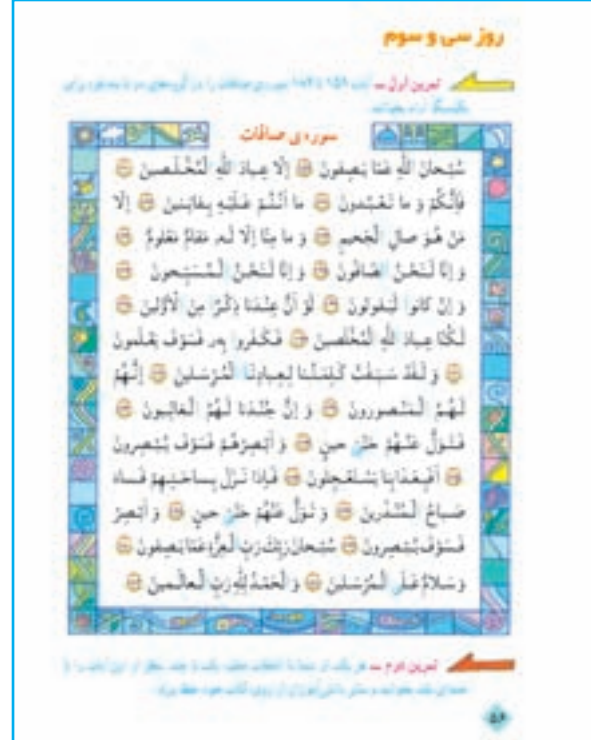 روز سی و سوم
تمرین اول ــ آیات ۱۵۹ تا ۱۸۲ سوره‌ی صافات را در گروه‌های دو تا سه نفره برای
یکدیگر
سوره ی صافات
سُبْحانَ اللّٰهِ عَمّا يَصِفونَ ۝ إِلّا عِبادَ اللّٰهِ الْمُخْلَصينَ ۝
فَإِنَّكُمْ وَ ما تَعْبُدونَ ۝ ما أَنْتُمْ عَلَيْهِ بِفاتِنينَ ۝ إِلّا
مَنْ هُوَ صالِ الْجَحيمِ ۝ وَ ما مِنّا إِلّا لَهُ مَقامٌ مَعْلومٌ ۝
وَ إِنّا لَنَحْنُ الصّافّونَ ۝ وَ إِنّا لَنَحْنُ الْمُسَبِّحونَ ۝
وَ إِنْ كانوا لَيَقولونَ ۝ لَوْ أَنَّ عِنْدَنا ذِكْرًا مِنَ الْأَوَّلينَ ۝
لَكُنّا عِبادَ اللّٰهِ الْمُخْلَصينَ ۝ فَكَفَروا بِهِ فَسَوْفَ يَعْلَمونَ
۝ وَ لَقَدْ سَبَقَتْ كَلِمَتُنا لِعِبادِنَا الْمُرْسَلينَ ۝ إِنَّهُمْ
لَهُمُ الْمَنْصورونَ ۝ وَ إِنَّ جُنْدَنا لَهُمُ الْغالِبونَ ۝
فَتَوَلَّ عَنْهُمْ حَتّىٰ حينٍ ۝ وَ أَبْصِرْهُمْ فَسَوْفَ يُبْصِرونَ
۝ أَفَبِعَذابِنا يَسْتَعْجِلونَ ۝ فَإِذا نَزَلَ بِساحَتِهِمْ فَساءَ
صَباحُ الْمُنْذَرينَ ۝ وَ تَوَلَّ عَنْهُمْ حَتّىٰ حينٍ ۝ وَ أَبْصِرْ
فَسَوْفَ يُبْصِرونَ ۝ سُبْحانَ رَبِّكَ رَبِّ الْعِزَّةِ عَمّا يَصِفونَ ۝
وَ سَلامٌ عَلَى الْمُرْسَلينَ ۝ وَ الْحَمْدُ لِلّٰهِ رَبِّ الْعالَمينَ ۝
تمرین دوم ــ هر یک از شما با انتخاب خود، یک یا چند سطر از این آیات را با
صدای بلند بخوانید و سایر دانش‌آموزان از روی کتاب خود خط ببرند.
۵۶